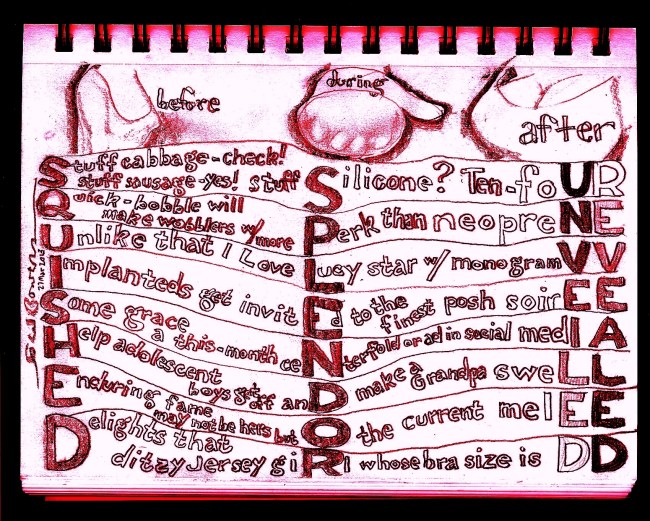 before
during
after
Stuff cabbage-check!
stuff sausage-yes! Stuff Silicone? Ten-foUR
Quick-bobble will
make wobblers w/more Perk than neopreNE
Unlike that I Love Lucy star w/ monogram VV
Implanteds get invitEd to the finest posh soirEE
Some grace
a this-month ceNterfold or ad in social medIA
Help adolescent
boys get off anD make a Grandpa sweLL
Enduring fame
may not be hers but O the current melEE
Delights that
ditzy Jersey giRl whose bra size is DD